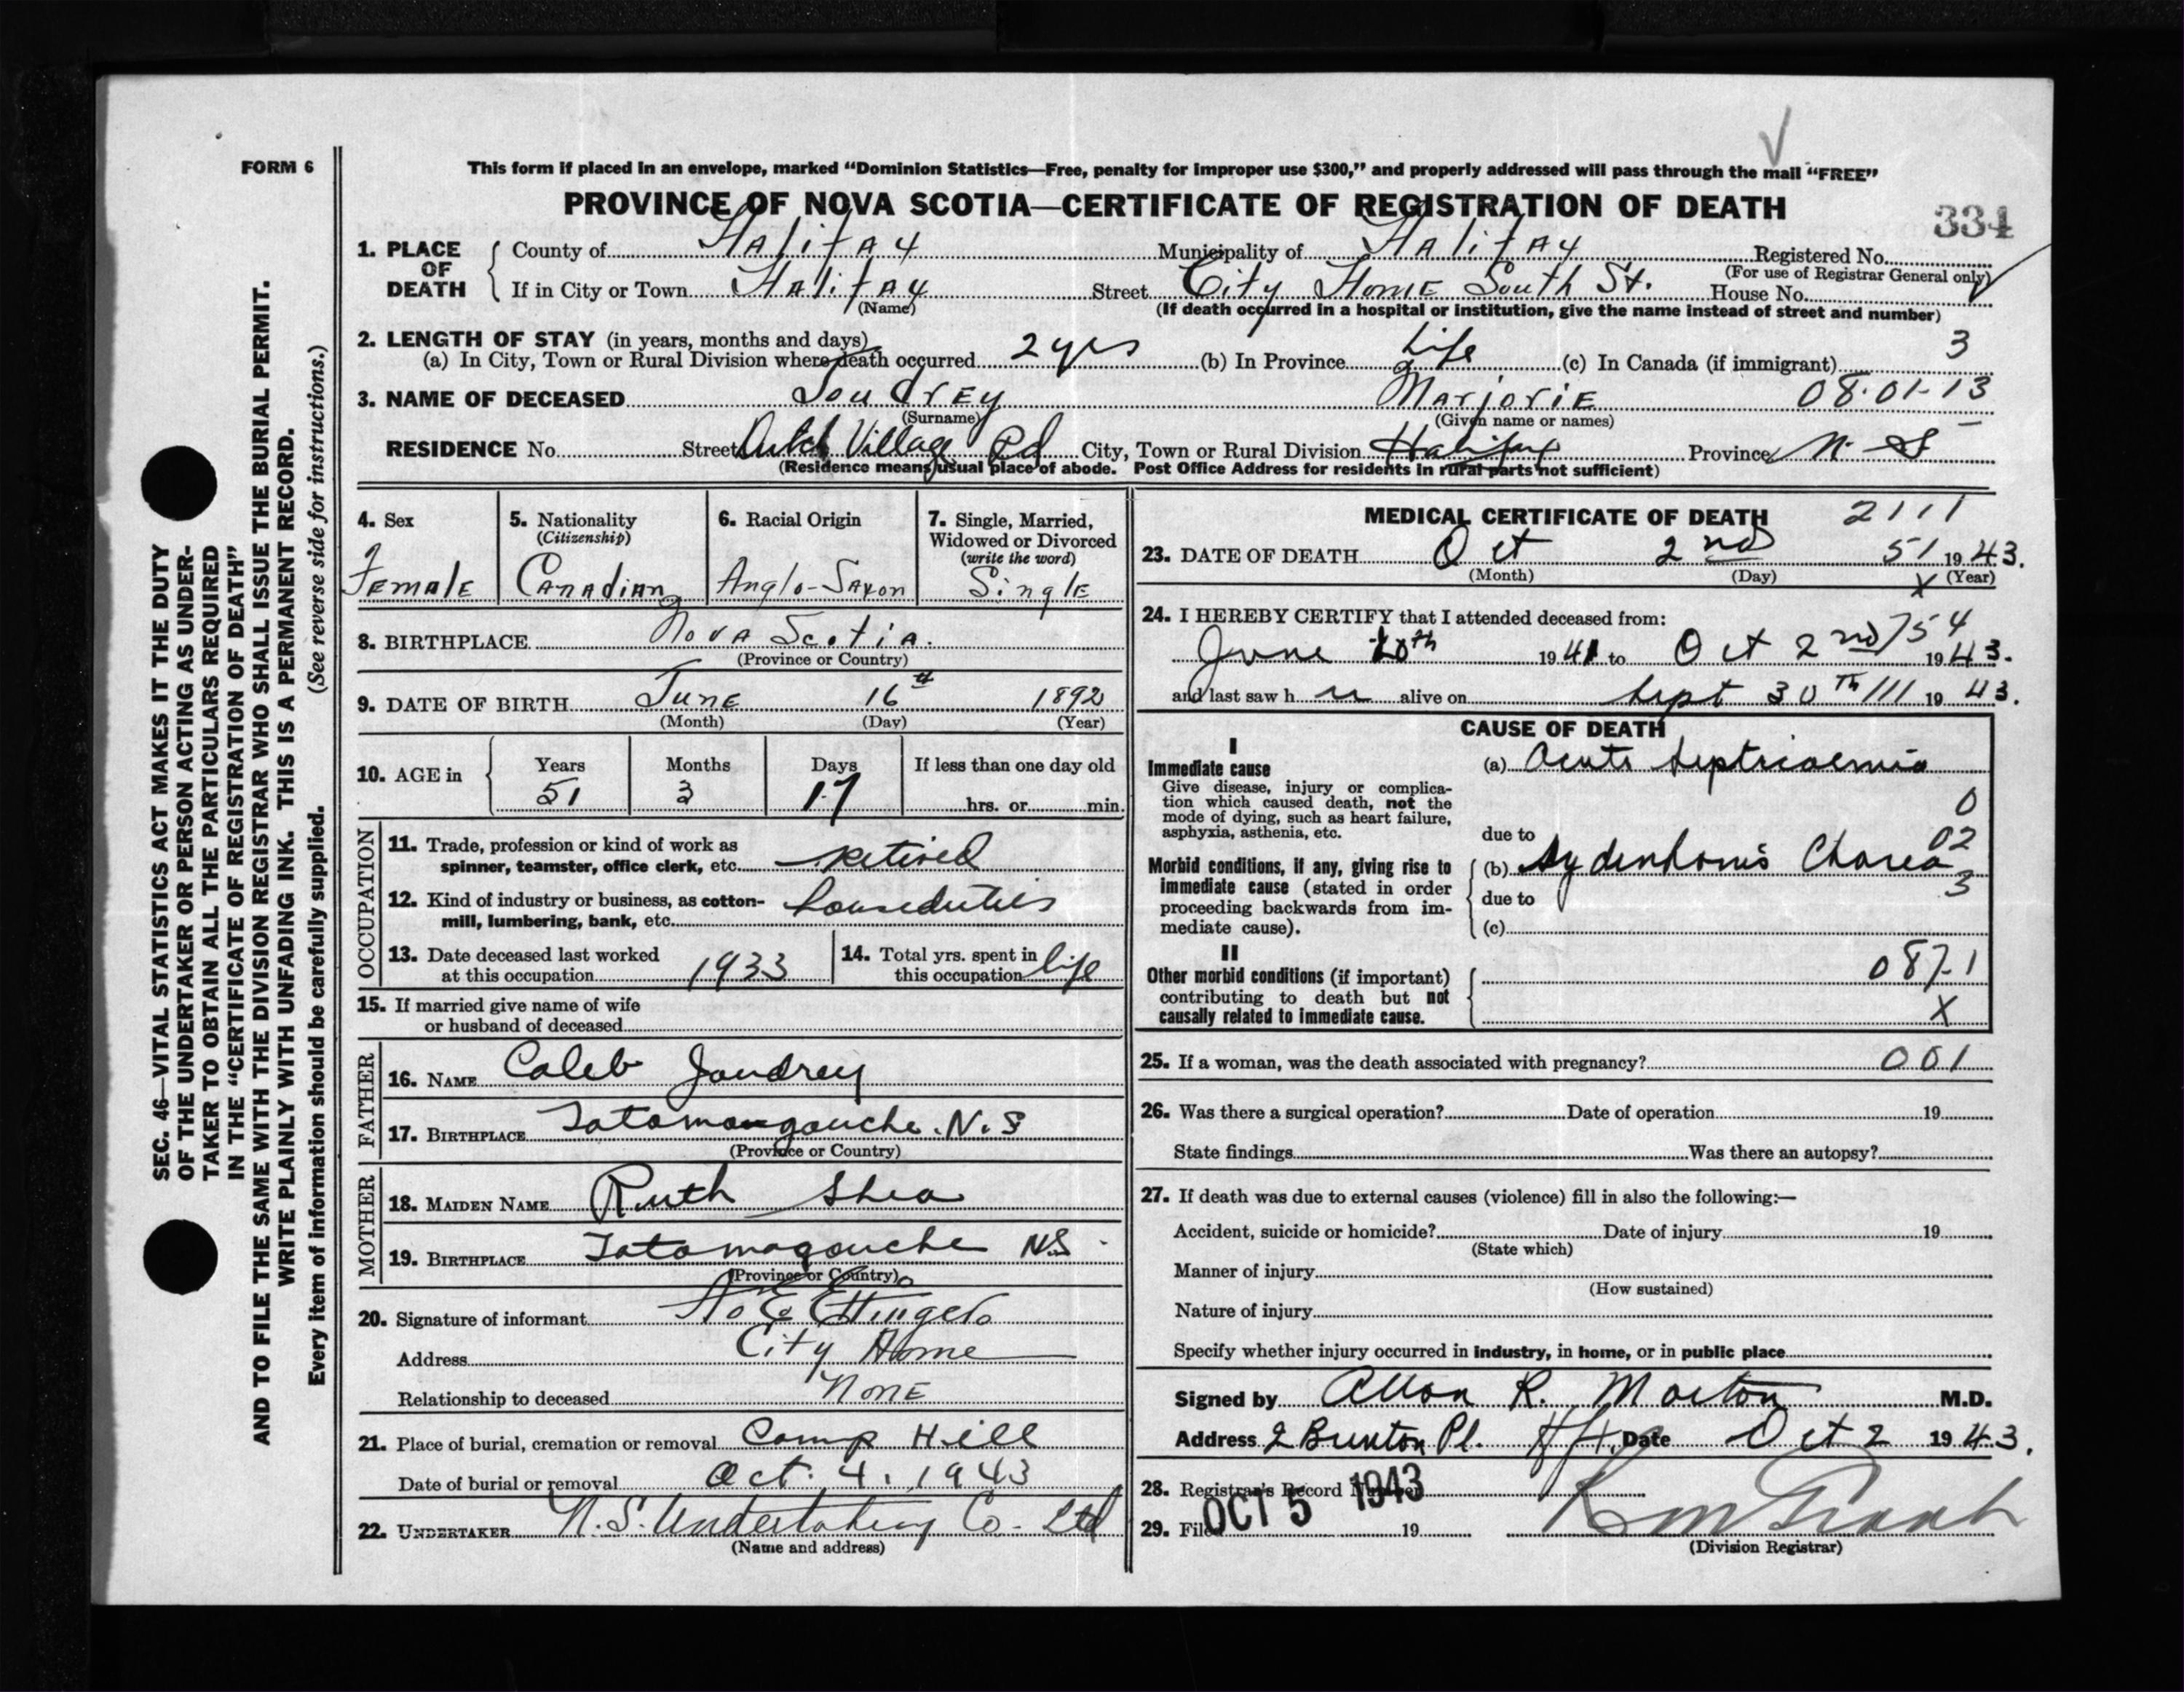 FORM 6
This form if placed in an envelope, marked “Dominion Statistics—Free, penalty for improper use $300,” and properly addressed will pass through the mail “FREE”
PROVINCE OF NOVA SCOTIA—CERTIFICATE OF REGISTRATION OF DEATH
334
1. PLACE OF DEATH
County of Halifax Municipality of Halifax Registered No.
(For use of Registrar General only)
If in City or Town Halifax Street City Home South St. House No.
(Name) (If death occurred in a hospital or institution, give the name instead of street and number)
2. LENGTH OF STAY (in years, months and days)
(a) In City, Town or Rural Division where death occurred 2 yrs (b) In Province Life (c) In Canada (if immigrant) 3
3. NAME OF DECEASED Joudrey Marjorie 08.01-13
(Surname) (Given name or names)
RESIDENCE No. Street Dutch Village Rd City, Town or Rural Division Halifax Province N. S
(Residence means usual place of abode. Post Office Address for residents in rural parts not sufficient)
4. Sex
Female
5. Nationality
(Citizenship)
Canadian
6. Racial Origin
Anglo-Saxon
7. Single, Married,
Widowed or Divorced
(write the word)
Single
8. BIRTHPLACE Nova Scotia.
(Province or Country)
9. DATE OF BIRTH June 16th 1892
(Month) (Day) (Year)
10. AGE in
Years Months Days If less than one day old
51 3 17 hrs. or min.
OCCUPATION
11. Trade, profession or kind of work as
spinner, teamster, office clerk, etc. retired
12. Kind of industry or business, as cotton-
mill, lumbering, bank, etc. houseduties
13. Date deceased last worked
at this occupation 1933
14. Total yrs. spent in
this occupation life
15. If married give name of wife
or husband of deceased
FATHER
16. NAME Caleb Joudrey
17. BIRTHPLACE Tatamagouche. N.S
(Province or Country)
MOTHER
18. MAIDEN NAME Ruth Shea
19. BIRTHPLACE Tatamagouche NS
(Province or Country)
20. Signature of informant Ettinger
Address City Home
Relationship to deceased None
21. Place of burial, cremation or removal Camp Hill
Date of burial or removal Oct. 4. 1943
22. UNDERTAKER N.S. Undertaking Co. Ltd
(Name and address)
MEDICAL CERTIFICATE OF DEATH 2111
23. DATE OF DEATH Oct 2nd 51 1943.
(Month) (Day) X (Year)
24. I HEREBY CERTIFY that I attended deceased from:
June 20th 1941 to Oct 2nd 754 1943.
and last saw h er alive on Sept 30th 111 1943.
CAUSE OF DEATH
I
Immediate cause
Give disease, injury or complica-
tion which caused death, not the
mode of dying, such as heart failure,
asphyxia, asthenia, etc.
(a) Acute Septicaemia
0
due to 02
Morbid conditions, if any, giving rise to
immediate cause (stated in order
proceeding backwards from im-
mediate cause).
(b) Sydenham's Chorea
due to 3
(c)
II
Other morbid conditions (if important)
contributing to death but not
causally related to immediate cause.
087-1
X
25. If a woman, was the death associated with pregnancy? 001
26. Was there a surgical operation? Date of operation 19
State findings Was there an autopsy?
27. If death was due to external causes (violence) fill in also the following:—
Accident, suicide or homicide? Date of injury 19
(State which)
Manner of injury
(How sustained)
Nature of injury
Specify whether injury occurred in industry, in home, or in public place
Signed by Allan R. Morton M.D.
Address 2 Brenton Pl. Hfx. Date Oct 2 1943.
28. Registrar's Record Number
29. Filed OCT 5 1943 19
(Division Registrar)
SEC. 46—VITAL STATISTICS ACT MAKES IT THE DUTY
OF THE UNDERTAKER OR PERSON ACTING AS UNDER-
TAKER TO OBTAIN ALL THE PARTICULARS REQUIRED
IN THE “CERTIFICATE OF REGISTRATION OF DEATH”
AND TO FILE THE SAME WITH THE DIVISION REGISTRAR WHO SHALL ISSUE THE BURIAL PERMIT.
WRITE PLAINLY WITH UNFADING INK. THIS IS A PERMANENT RECORD.
Every item of information should be carefully supplied. (See reverse side for instructions.)